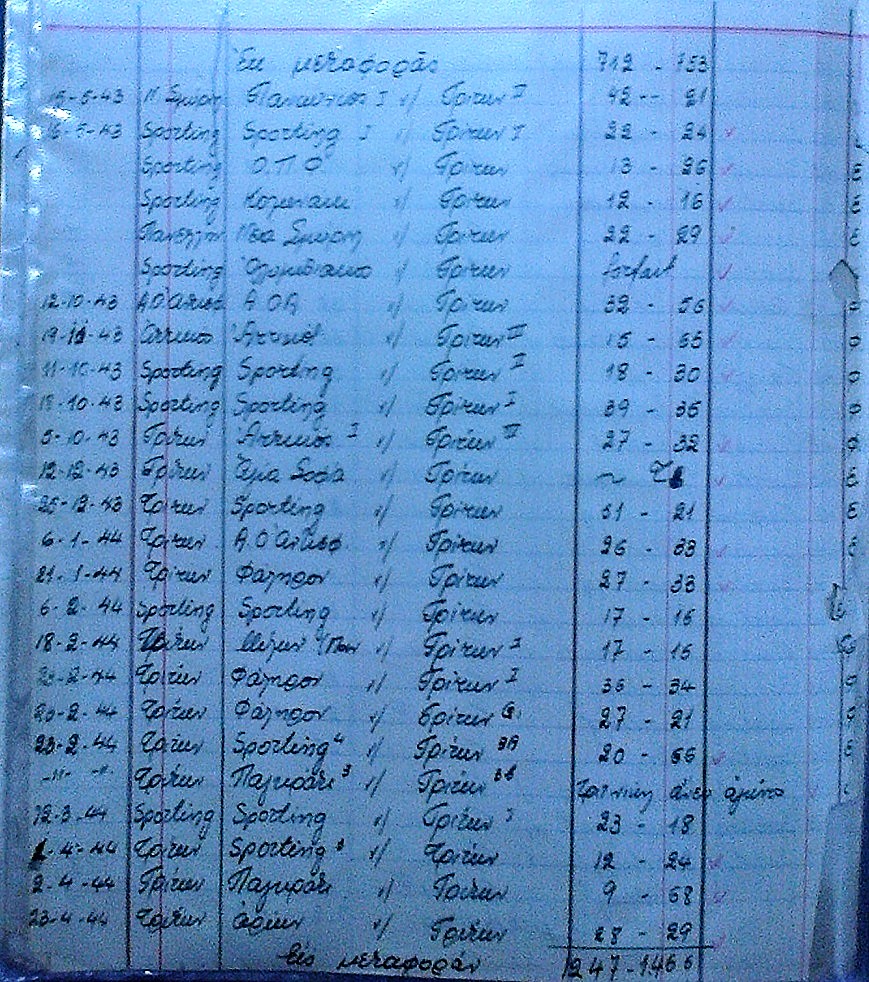 Ἐκ μεταφορᾶς 712 - 753
15-5-43 Ν. Σμύρν Πανιώνιος I v/ Τρίτων II 42 - 21
16-5-43 Sporting Sporting I v/ Τρίτων I 22 - 24
Sporting Ο.Π.Ο v/ Τρίτων 13 - 26
Sporting v/ Τρίτων 12 - 16
Πανελλην Νέα Σμύρνη v/ Τρίτων 22 - 29
Sporting Ὀλυμπιακός v/ Τρίτων forfait
12-10-43 Α Ο Α v/ Τρίτων 32 - 56
v/ Τρίτων 15 - 65
11-10-43 Sporting Sporting v/ Τρίτων II 18 - 30
-10-43 Sporting Sporting v/ Τρίτων I 39 - 35
5-10-43 Τρίτων I v/ Τρίτων 27 - 32
12-12-43 Τρίτων v/ Τρίτων
25-12-43 Τρίτων Sporting v/ Τρίτων 51 - 21
6-1-44 Τρίτων v/ Τρίτων 26 - 33
21-1-44 Τρίτων Φάληρον v/ Τρίτων 27 - 33
6-2-44 Sporting Sporting v/ Τρίτων 17 - 16
18-2-44 Τρίτων v/ Τρίτων I 17 - 15
-2-44 Τρίτων Φάληρον v/ Τρίτων I 36 - 34
20-2-44 Τρίτων Φάληρον v/ Τρίτων 27 - 21
-2-44 Τρίτων Sporting 4 v/ Τρίτων 20 - 66
-"- -"- Τρίτων Παγκράτι 3 v/ Τρίτων ἄνευ ἀγῶνο
12-3-44 Sporting Sporting v/ Τρίτων I 23 - 18
-4-44 Τρίτων Sporting v/ Τρίτων 12 - 24
2-4-44 Τρίτων Παγκράτι v/ Τρίτων 9 - 68
23-4-44 Τρίτων v/ Τρίτων 28 - 29
Εἰς μεταφοράν 1247 - 1466